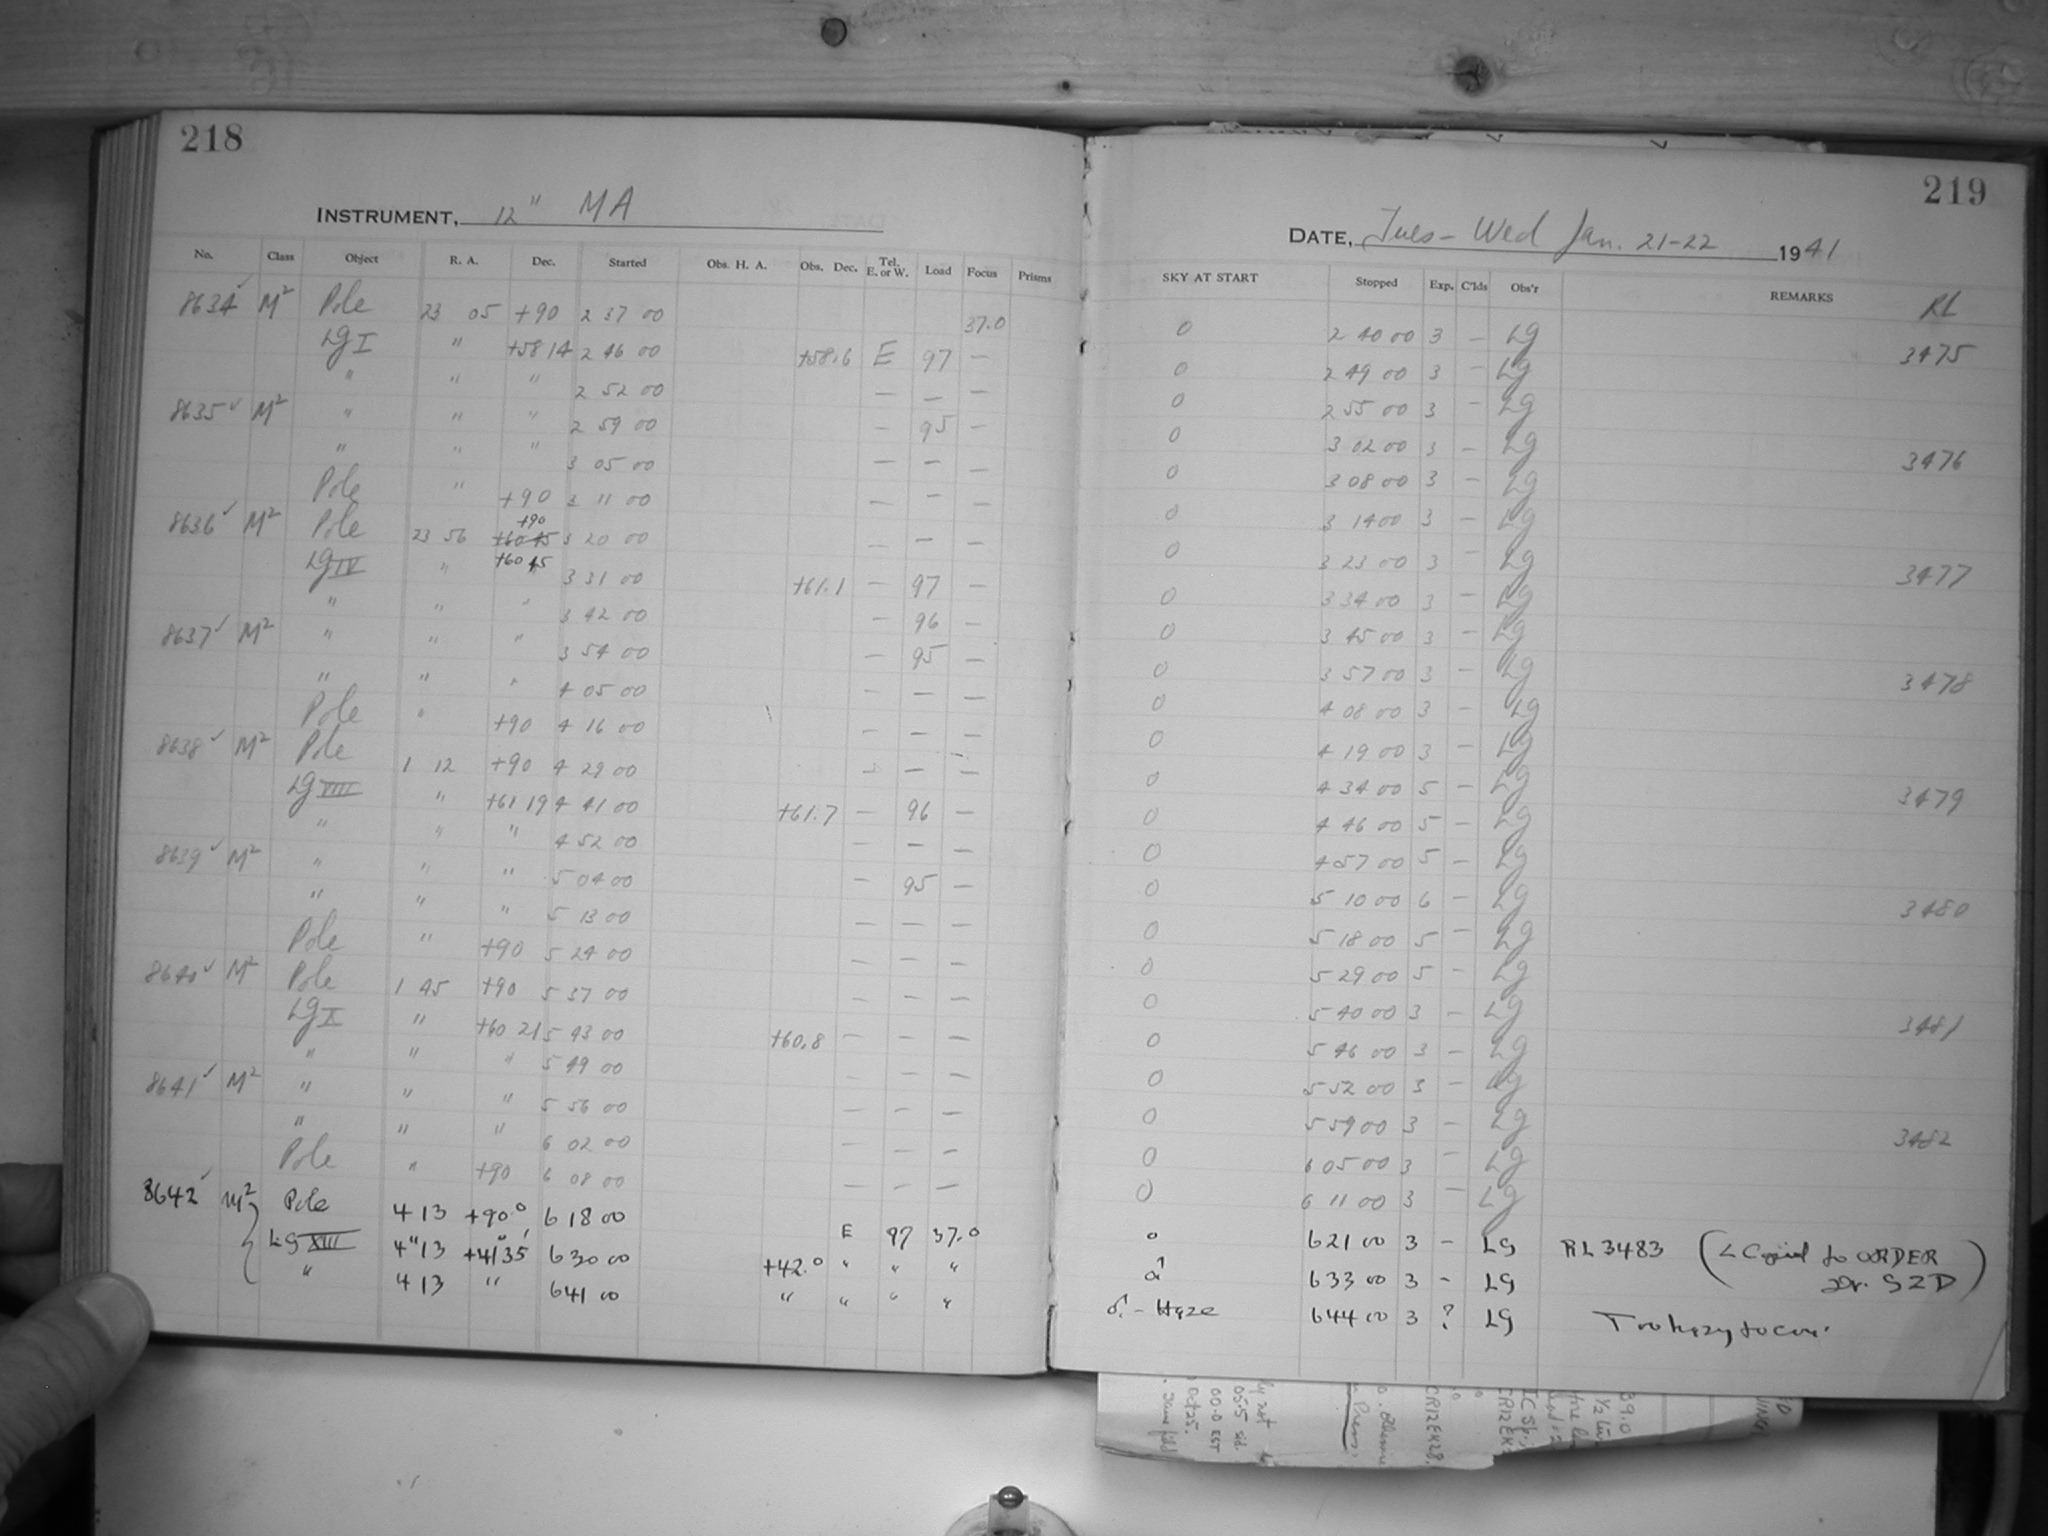 218
INSTRUMENT, 12" MA
No. Class Object R. A. Dec. Started Obs. H. A. Obs. Dec. Tel. E. or W. Load Focus Prisms
8634 ✓ M² Pole 23 05 +90 2 37 00 37.0
Lg I " +58 14 2 46 00 +58.6 E 97 —
" " " 2 52 00 — — —
8635 ✓ M² " " " 2 59 00 — 95 —
" " " 3 05 00 — — —
Pole " +90 3 11 00 — — —
8636 ✓ M² Pole 23 56 +90 3 20 00 — — —
Lg IV " +60 45 3 31 00 +61.1 — 97 —
" " " 3 42 00 — 96 —
8637 ✓ M² " " " 3 54 00 — 95 —
" " " 4 05 00 — — —
Pole " +90 4 16 00 — — —
8638 ✓ M² Pole 1 12 +90 4 29 00 — — —
Lg VIII " +61 19 4 41 00 +61.7 — 96 —
" " " 4 52 00 — — —
8639 ✓ M² " " " 5 04 00 — 95 —
" " " 5 13 00 — — —
Pole " +90 5 24 00 — — —
8640 ✓ M² Pole 1 45 +90 5 37 00 — — —
Lg X " +60 21 5 43 00 +60.8 — — —
" " " 5 49 00 — — —
8641 ✓ M² " " " 5 56 00 — — —
" " " 6 02 00 — — —
Pole " +90 6 08 00 — — —
8642 ✓ M² Pole 4 13 +90.0 6 18 00 E 97 37.0
LG XIII 4 13 +41 35 6 30 00 +42.0 " " "
" 4 13 " 6 41 00 " " " "
219
DATE, Tues – Wed Jan. 21-22 1941
SKY AT START Stopped Exp. C'lds Obs'r REMARKS RL
0 2 40 00 3 — Lg 3475
0 2 49 00 3 — Lg
0 2 55 00 3 — Lg
0 3 02 00 3 — Lg 3476
0 3 08 00 3 — Lg
0 3 14 00 3 — Lg
0 3 23 00 3 — Lg 3477
0 3 34 00 3 — Lg
0 3 45 00 3 — Lg
0 3 57 00 3 — Lg 3478
0 4 08 00 3 — Lg
0 4 19 00 3 — Lg
0 4 34 00 5 — Lg 3479
0 4 46 00 5 — Lg
0 4 57 00 5 — Lg
0 5 10 00 6 — Lg 3480
0 5 18 00 5 — Lg
0 5 29 00 5 — Lg
0 5 40 00 3 — Lg 3481
0 5 46 00 3 — Lg
0 5 52 00 3 — Lg
0 5 59 00 3 — Lg 3482
0 6 05 00 3 — Lg
0 6 11 00 3 — Lg
0 6 21 00 3 – LG RL 3483 to ORDER
6 33 00 3 – LG SZD
- Haze 6 44 00 3 ? LG Too hazy